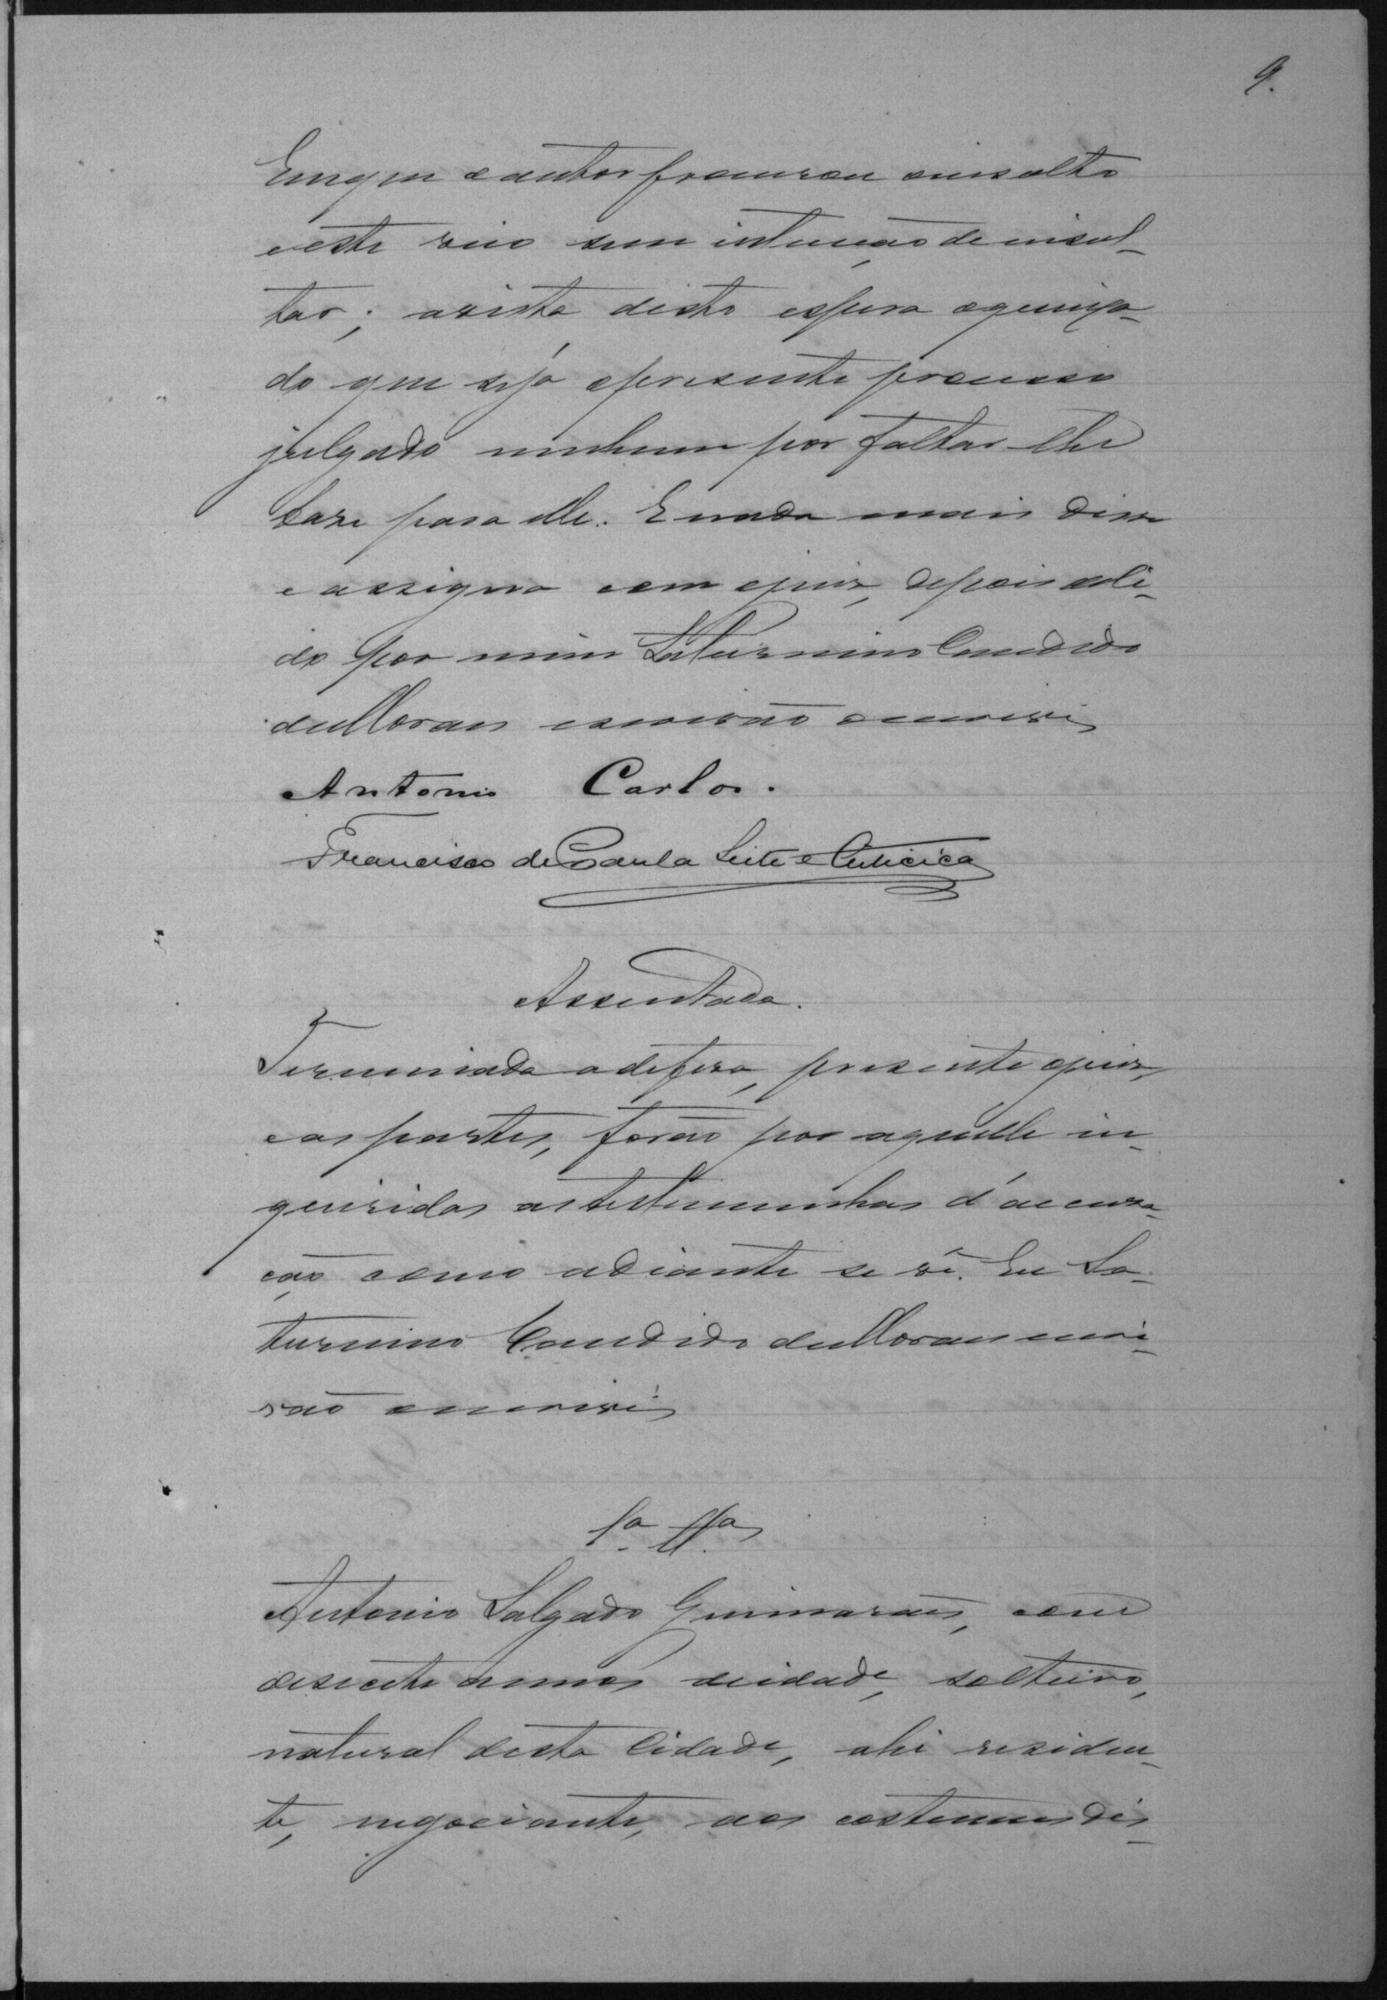 9.
Em que o autor procurou o insulto
e este veio sem intenção de insul-
tar; a vista disto espera o queixa-
do que seja o presente processo
julgado nenhum por faltar-lhe
base para elle. E nada mais disse
e assigna com o juiz, depois de li-
do por mim Saturnino Candido
de Moraes escrivão o escrevi
Antonio Carlos.
Francisco de Paula Leite e Oiticica
Assentada.
Terminada a defesa, presente o juiz,
e as partes, forão por aquelle in-
queridas as testemunhas d'accusa-
ção como adiante se vê. Eu Sa-
turnino Candido de Moraes escri-
vão o escrevi
1a. Ta.
Antonio Salgado Guimarães, com
desesete annos de idade, solteiro,
natural desta Cidade, ahi residen-
te, negociante, aos costumes dis-